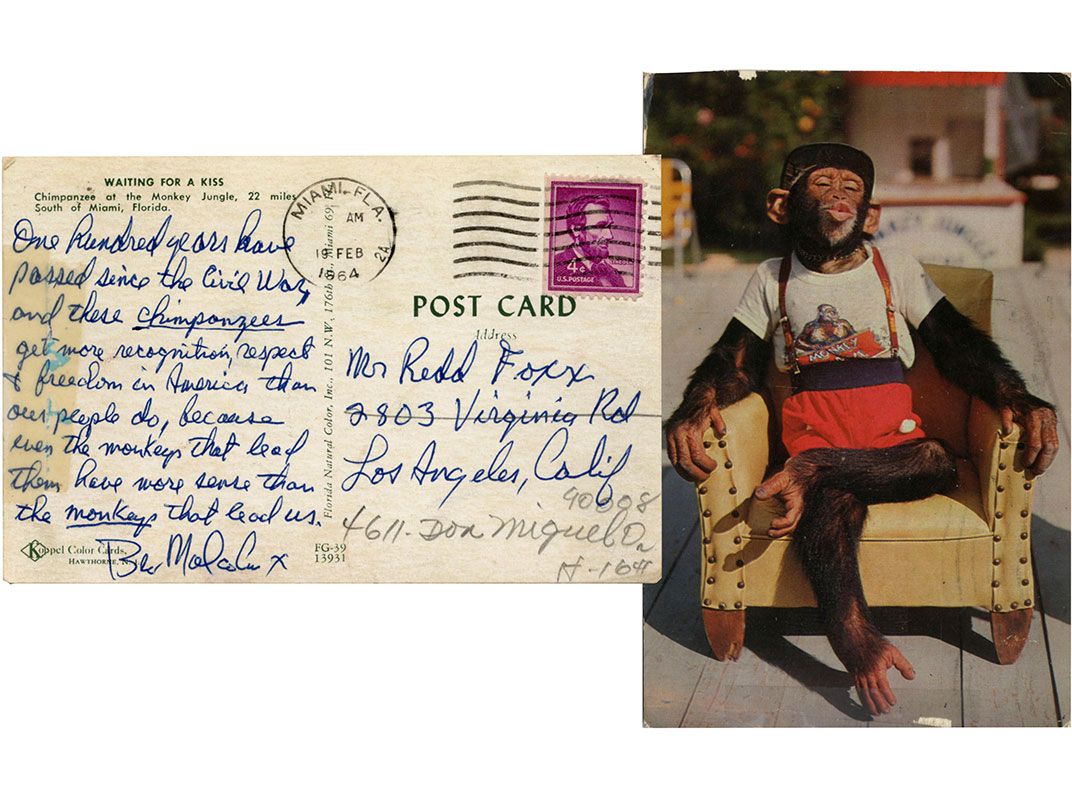 WAITING FOR A KISS
Chimpanzee at the Monkey Jungle, 22 miles
South of Miami, Florida.
One Hundred years have
passed since the Civil War,
and these chimpanzees
get more recognition, respect
& freedom in America than
our people do, because
even the monkeys that lead
them have more sense than
the monkeys that lead us.
Bro Malcolm X
Koppel Color Cards,
HAWTHORNE, N. J.
FG-39
13931
Florida Natural Color, Inc., 101 N.W. 176th St. Miami 69, Fla.
MIAMI, FLA.
AM
19 FEB
1964
24
4¢
LINCOLN
U.S. POSTAGE
POST CARD
Address
Mr Redd Foxx
2803 Virginia Rd
Los Angeles, Calif
90008
4611. Don Miguel Dr
MONKEY